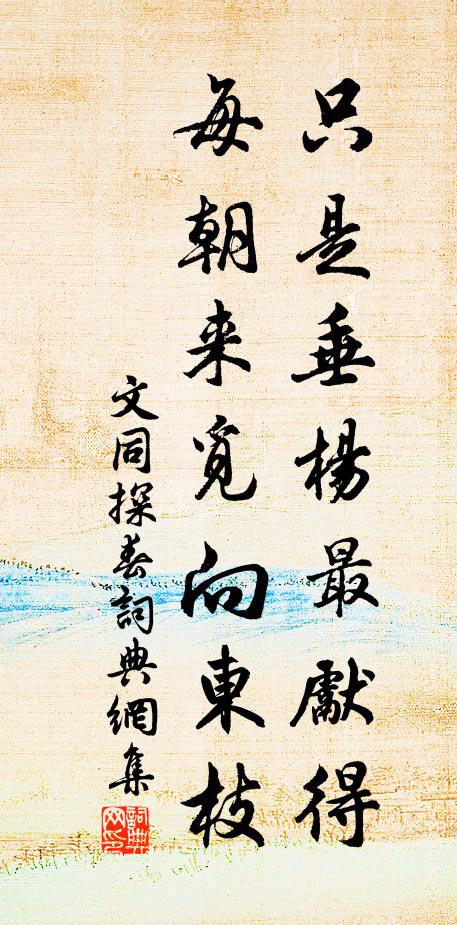 只是垂楊最獻得
每朝来覓向東枝
文同探春詞典網集
詞典网印